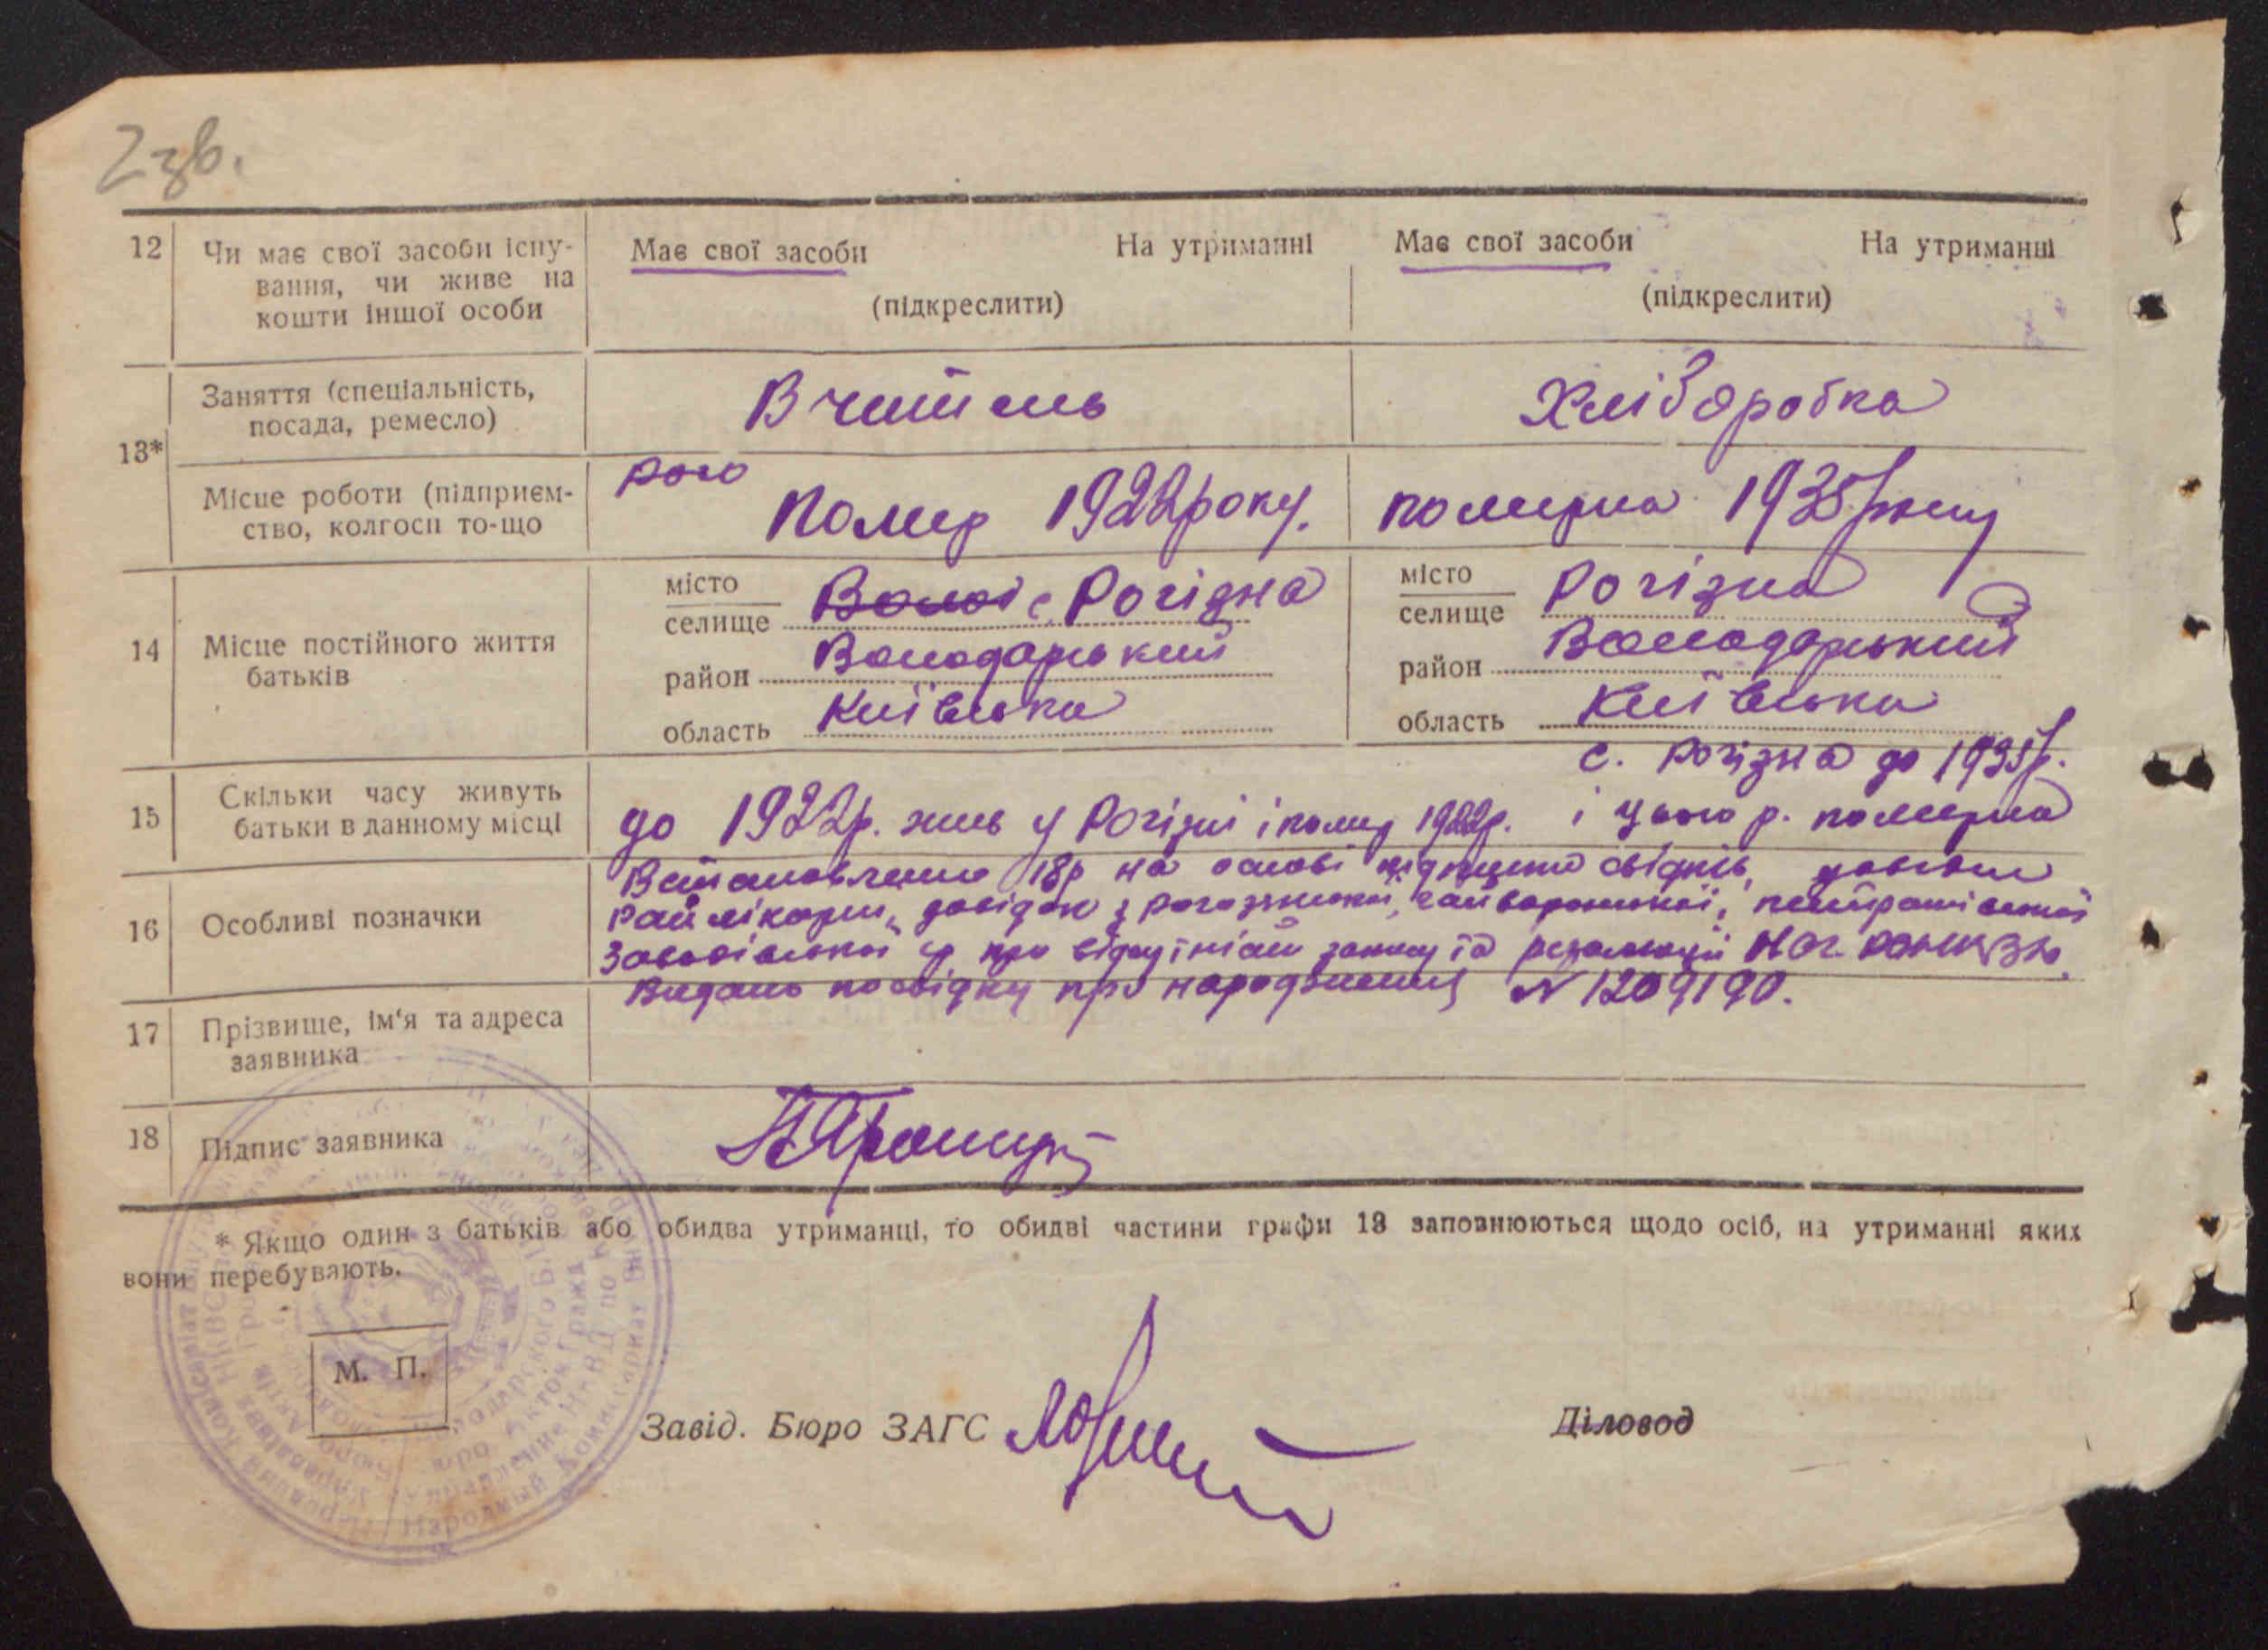 2 зв.
12 Чи має свої засоби існу-
вання, чи живе на
кошти іншої особи
Має свої засоби На утриманні
(підкреслити)
Має свої засоби На утриманні
(підкреслити)
13*
Заняття (спеціальність,
посада, ремесло)
Вчитель
Хліборобка
Місце роботи (підприєм-
ство, колгосп то-що
Помер 1922 року.
померла 1935 року
14 Місце постійного життя
батьків
місто
селище с. Рогізна
район Володарський
область Київська
місто
селище Рогізна
район Володарський
область Київська
15 Скільки часу живуть
батьки в данному місці
до 1922 р. жив у Рогізні і помер 1922р.
с. Рогізна до 1935 р.
і цього р. померла
16 Особливі позначки
Встановлено 18р на основі свідків,
райлікарні, довідок з
про відсутність запису та
Видано посвідку про народження № 1209190.
17 Прізвище, ім'я та адреса
заявника
18 Підпис заявника
* Якщо один з батьків або обидва утриманці, то обидві частини графи 13 заповнюються щодо осіб, на утриманні яких
вони перебувають.
М. П.
Завід. Бюро ЗАГС
Діловод